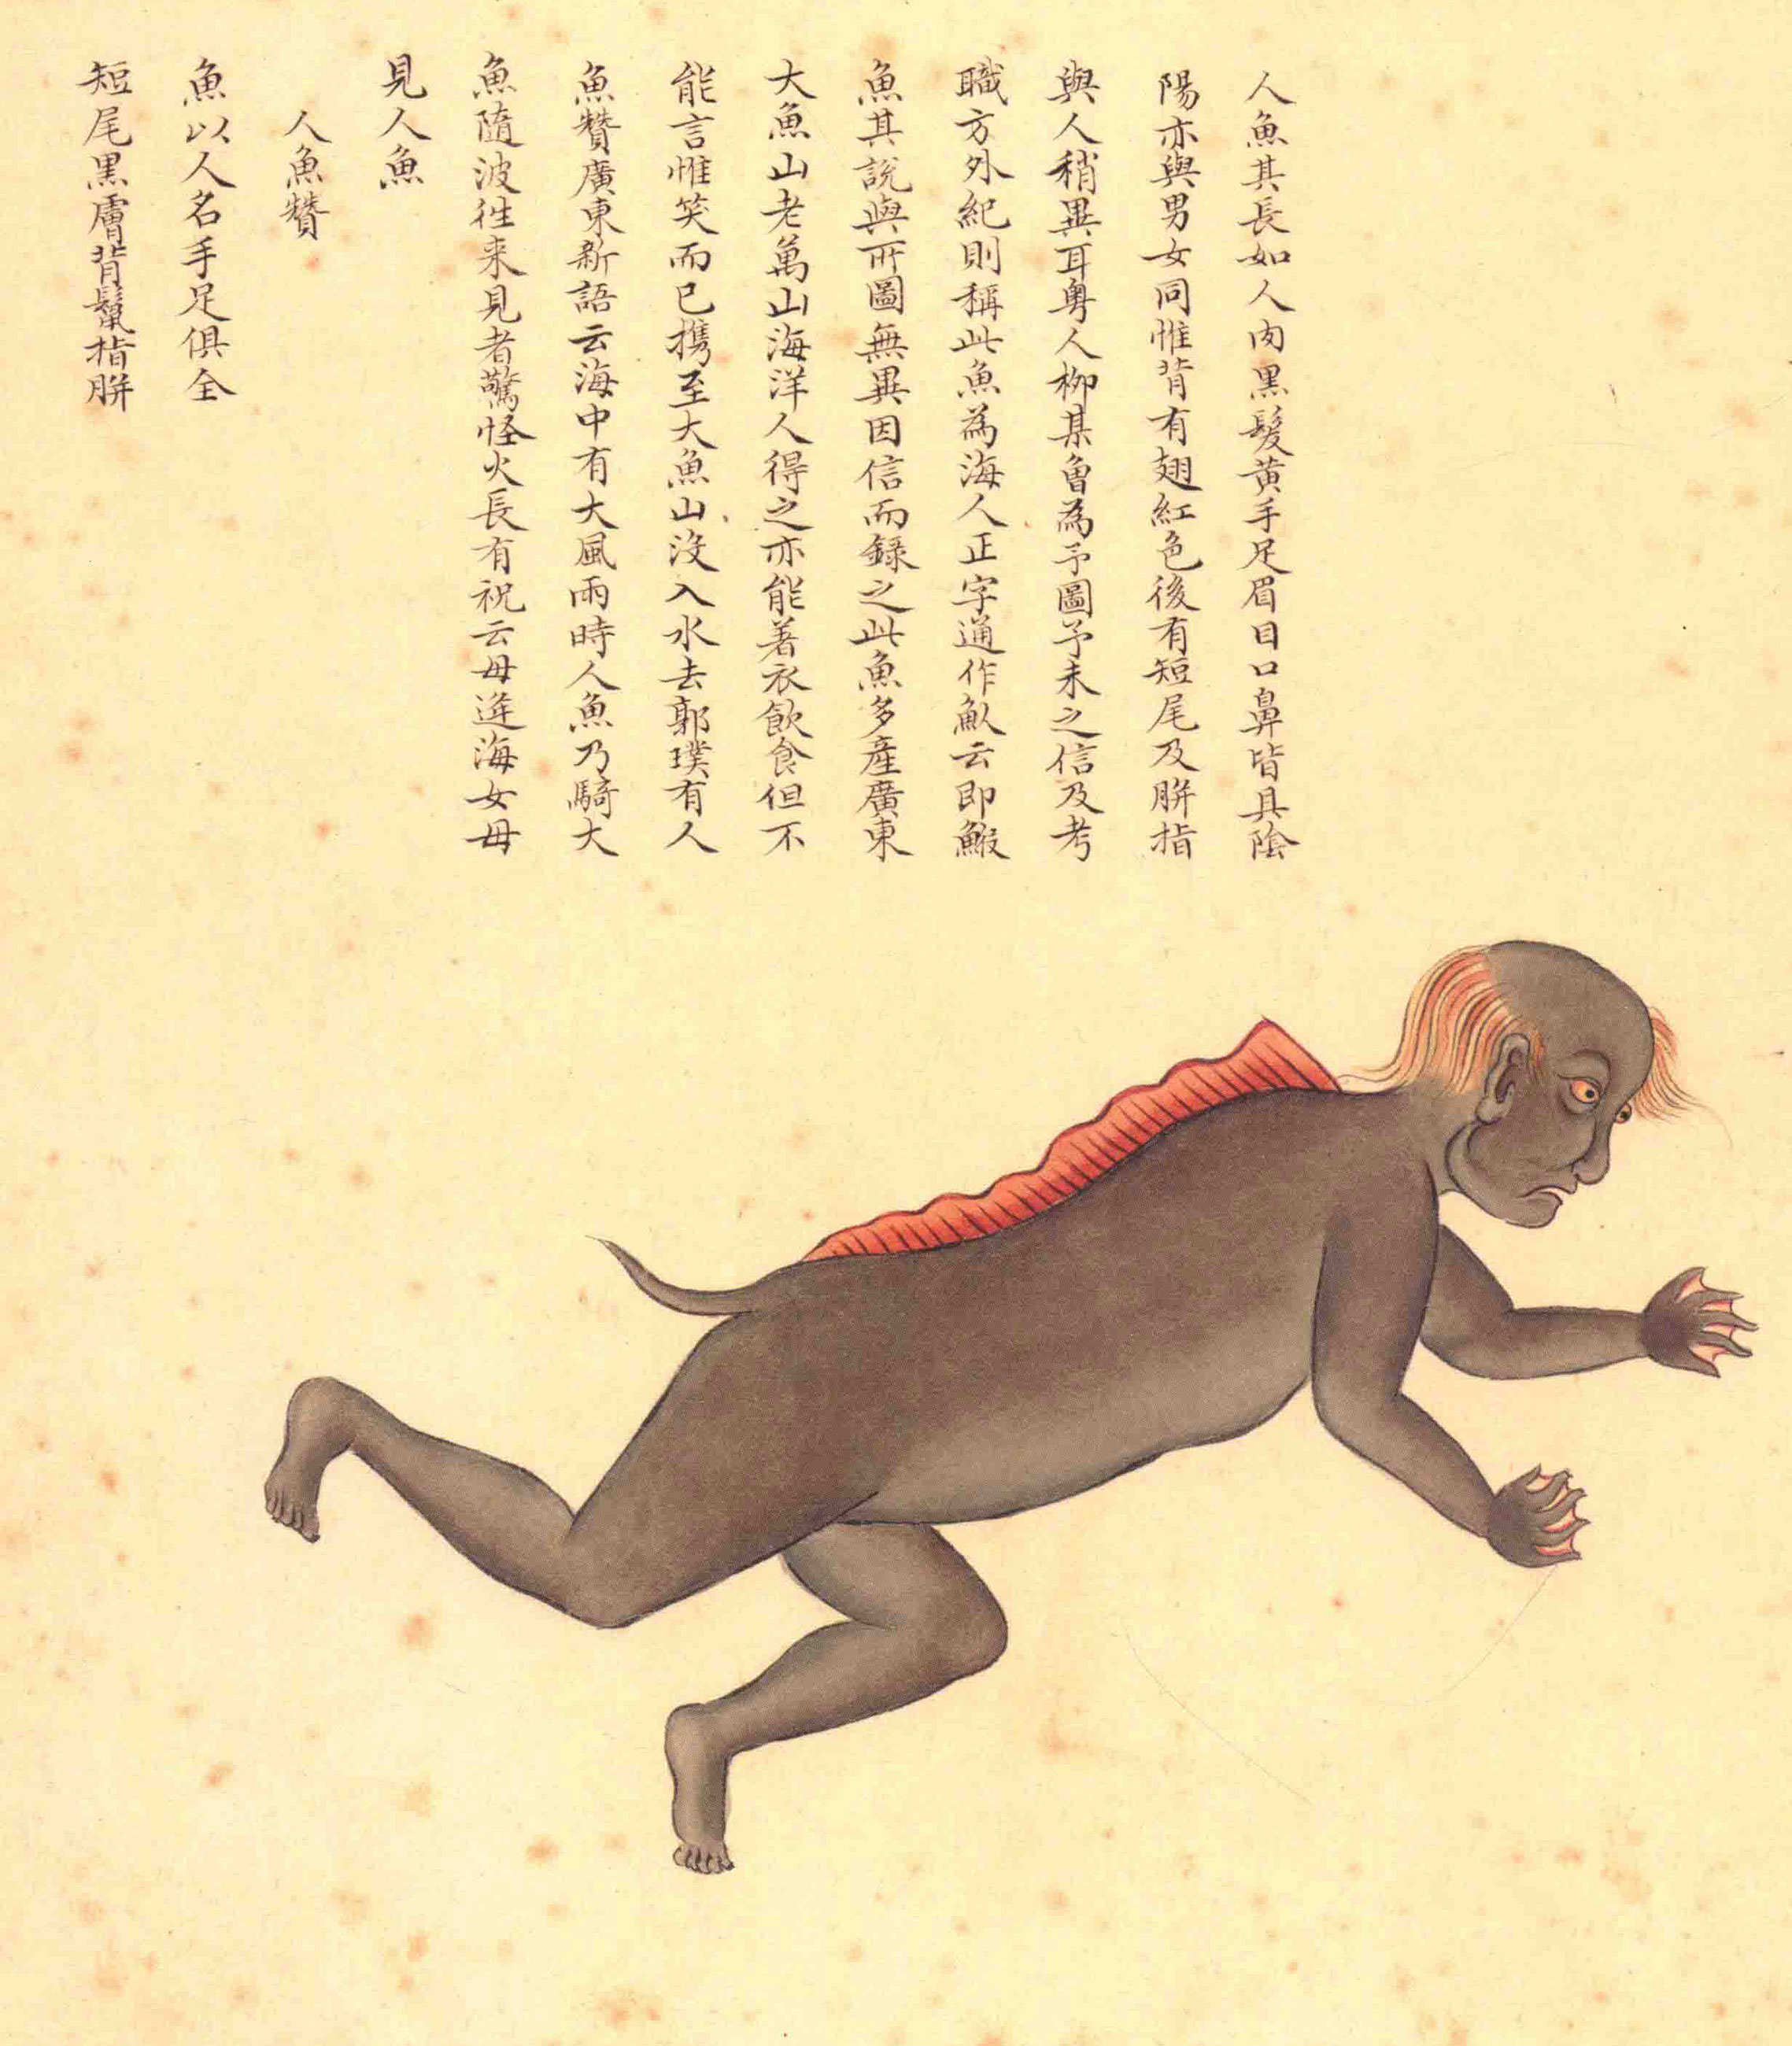 人魚其長如人肉黑髮黃手足眉目口鼻皆具陰
陽亦與男女同惟背有翅紅色後有短尾及胼指
與人稍異耳粵人柳某曾為予圖予未之信及考
職方外紀則稱此魚為海人正字通作魜云即鰕
魚其說與所圖無異因信而錄之此魚多產廣東
大魚山老萬山海洋人得之亦能著衣飲食但不
能言惟笑而已携至大魚山沒入水去郭璞有人
魚贊廣東新語云海中有大風雨時人魚乃騎大
魚隨波徃来見者驚怪火長有祝云毋逆海女毋
見人魚
人魚贊
魚以人名手足俱全
短尾黑膚背鬣指胼